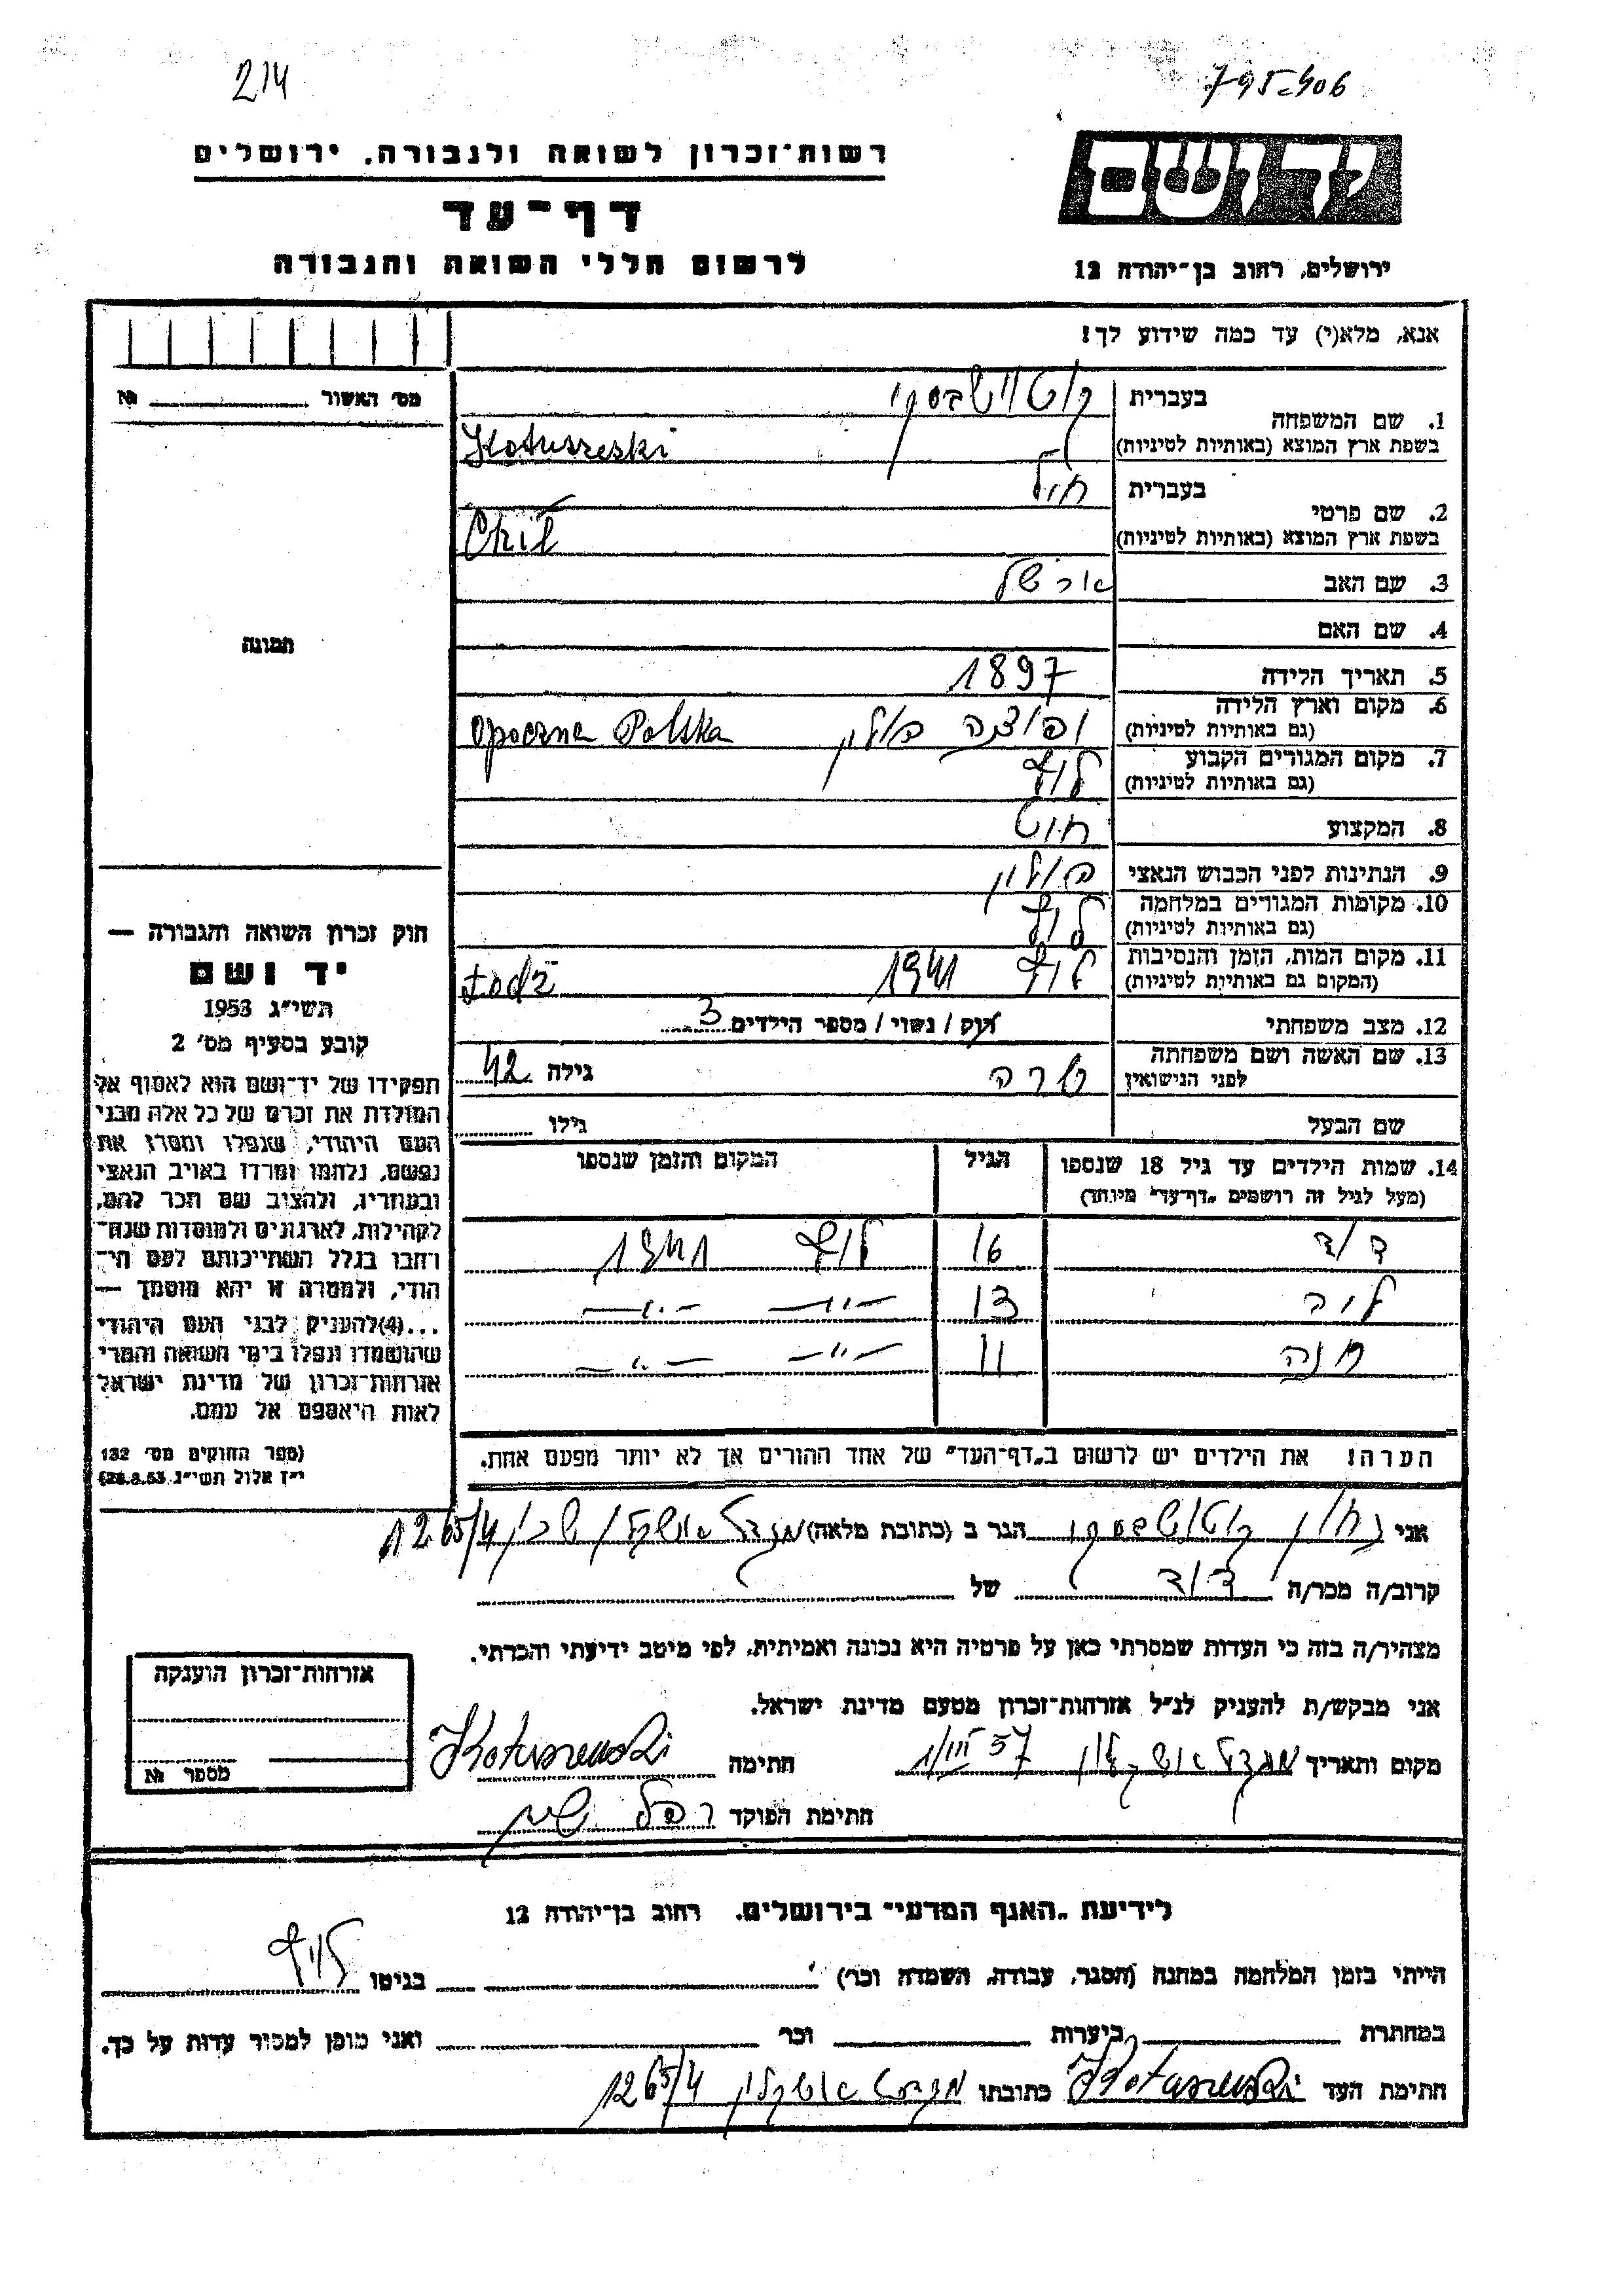 214
795-406
רשות־זכרון לשואה ולגבורה, ירושלים
דף־עד
לרשום חללי השואה והגבורה
יד ושם
ירושלים, רחוב בן־יהודה 12
אנא, מלא(י) עד כמה שידוע לך!
מס׳ האשור № 
תמונה
1. שם המשפחה
בעברית
קוטושבסקי
בשפת ארץ המוצא (באותיות לטיניות)
Kotuszeski
2. שם פרטי
בעברית
חיל
בשפת ארץ המוצא (באותיות לטיניות)
Chił
3. שם האב
4. שם האם
5. תאריך הלידה 1897
6. מקום וארץ הלידה
(גם באותיות לטיניות)
ופוצנה פולין Opoczna Polska
7. מקום המגורים הקבוע לודז
(גם באותיות לטיניות)
8. המקצוע
9. הנתינות לפני הכבוש הנאצי פולין
10. מקומות המגורים במלחמה לודז
(גם באותיות לטיניות)
11. מקום המות, הזמן והנסיבות
(המקום גם באותיות לטיניות)
לודז 1941 Łodż
12. מצב משפחתי רוק / נשוי / מספר הילדים 3
13. שם האשה ושם משפחתה
לפני הנישואין
שרה גילה 42
שם הבעל גילו
14. שמות הילדים עד גיל 18 שנספו הגיל המקום והזמן שנספו
(מעל לגיל זה רושמים „דף־עד״ מיוחד)
דוד 16 לודז 1941
13 —״— —״—
11 —״— —״—
הערה! את הילדים יש לרשום ב„דף־העד״ של אחד ההורים אך לא יותר מפעם אחת.
חוק זכרון השואה והגבורה —
יד ושם
תשי״ג 1953
קובע בסעיף מס׳ 2
תפקידו של יד־ושם הוא לאסוף אל
המולדת את זכרם של כל אלה מבני
העם היהודי, שנפלו ומסרו את
נפשם, נלחמו ומרדו באויב הנאצי
ובעוזריו, ולהציב שם וזכר להם,
לקהילות, לארגונים ולמוסדות שנח־
רבו בגלל השתייכותם לעם הי־
הודי, ולמטרה זו יהא מוסמך —
...(4)להעניק לבני העם היהודי
שהושמדו ונפלו בימי השואה והמרי
אזרחות־זכרון של מדינת ישראל
לאות היאספם אל עמם.
(ספר החוקים מס׳ 132
י״ז אלול תשי״ג 28.8.53)
אני קוטושבסקי הגר ב (כתובת מלאה) מגדל אשקלון 1265/4
קרוב/ה מכר/ה דוד של
מצהיר/ה בזה כי העדות שמסרתי כאן על פרטיה היא נכונה ואמיתית, לפי מיטב ידיעתי והכרתי.
אני מבקש/ת להעניק לנ״ל אזרחות־זכרון מטעם מדינת ישראל.
מקום ותאריך מגדל אשקלון 1/III 57 חתימה Kotuszewski
חתימת הפוקד
אזרחות־זכרון הוענקה
מספר №
לידיעת „האגף המדעי״ בירושלים, רחוב בן־יהודה 12
הייתי בזמן המלחמה במחנה (הסגר, עבודה, השמדה וכו׳) בגיטו לודז
במחתרת ביערות וכו׳ ואני מוכן למסור עדות על כך.
חתימת העד Kotuszewski כתובתו מגדל אשקלון 1265/4